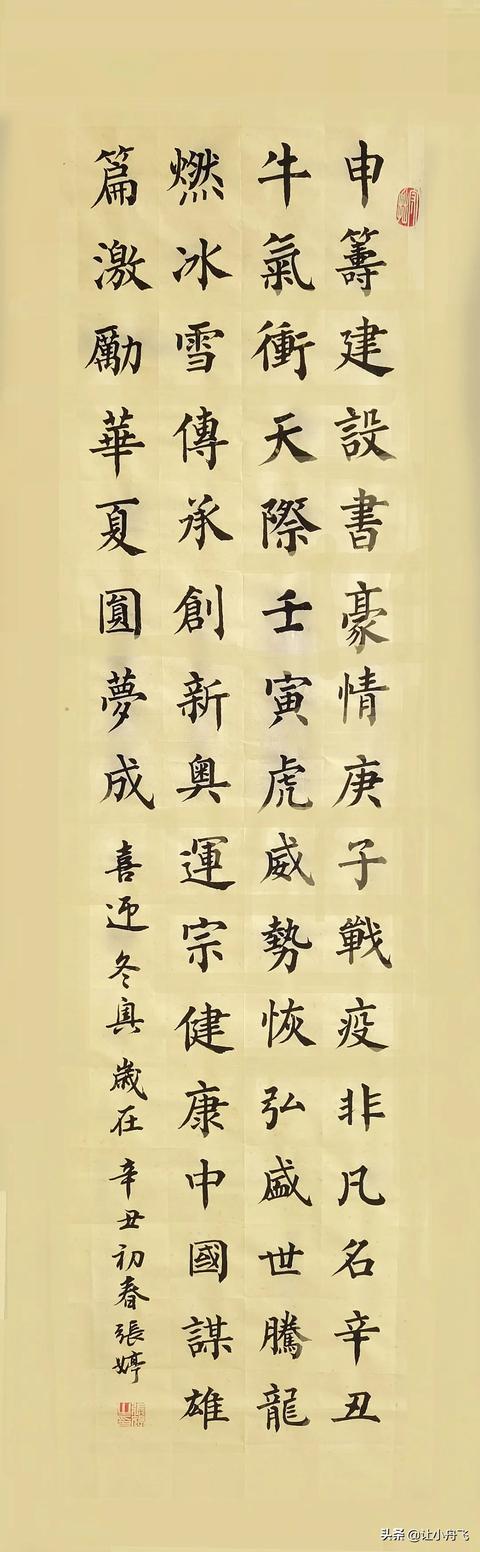 申籌建設書豪情庚子戰疫非凡名辛丑
牛氣衝天際壬寅虎威勢恢弘盛世騰龍
燃冰雪傳承創新奧運宗健康中國謀雄
篇激勵華夏圓夢成
喜迎冬奧歲在辛丑初春張婷
头条 @让小舟飞